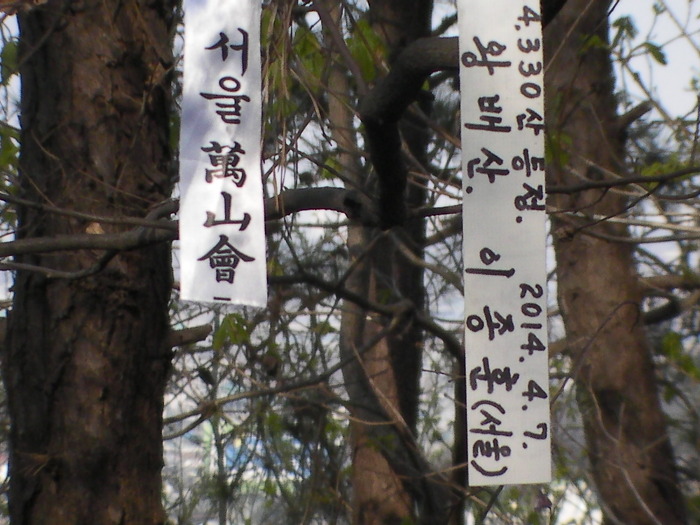 서울 萬山會
4.330산 등정. 2014. 4. 7.
왕배산. 이종훈(서울)